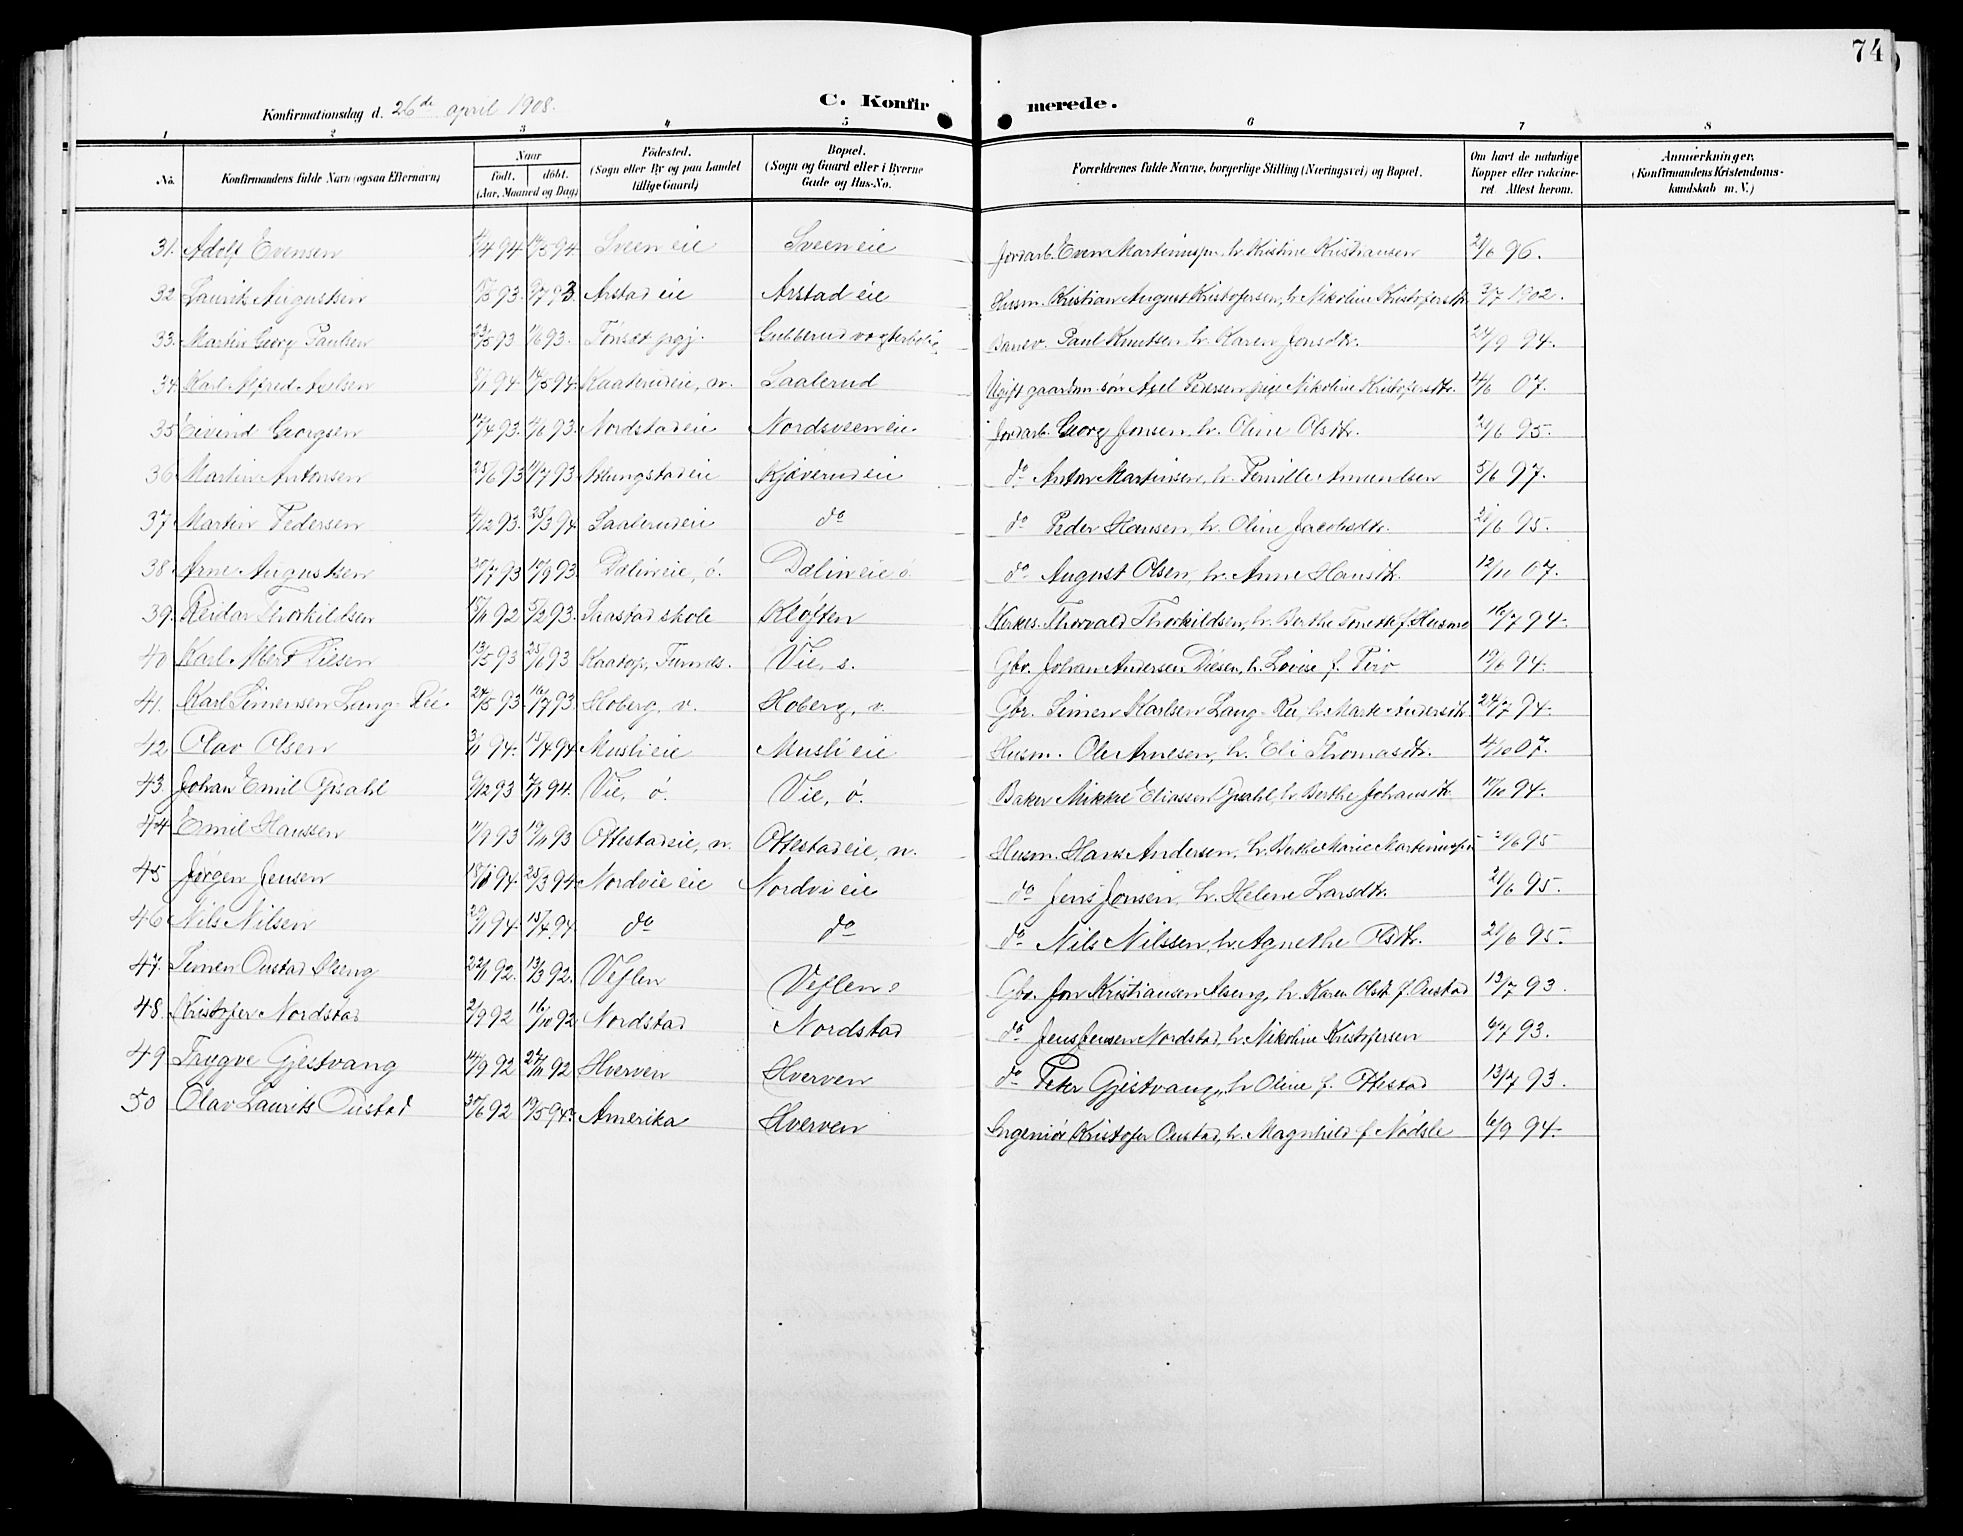 74
Konfirmationsdag d. 26de april 1908.
C. Konfirmerede.
1 2 3 4 5 6 7 8
No. Konfirmandens fulde Navn (ogsaa Efternavn) Naar født. døbt. (Aar, Maaned og Dag) Födested. (Sogn eller By og paa Landet tillige Gaard) Bopæl. (Sogn og Gaard eller i Byerne Gade og Hus-No. Forældrenes fulde Navne, borgerlige Stilling (Næringsvei) og Bopæl. Om havt de naturlige Kopper eller vakcineret Attest herom. Anmærkninger. (Konfirmandens Kristendomskundskab m. V.)
31. Adolf Evensen 94 94 Sveen eie Sveen eie Jordarb. Even Martinusen, h. Kristine Kristiansen 21/6 96.
32 Laurits Augustsen 93. 93 Arstad eie Arstad eie Husm. Kristian August Kristofersen, h. Nikoline Kristofersdtr. 3/7 1902.
33. Martin Georg Paulsen 23/5 93 93. Tönset pgj. Gubberud vogterbolig Banev. Paul Knutsen h. Karen Jonsdtr. 24/9 94.
34. Karl Alfred Axelsen 94. 94. Kaaterudeie, n. Saalerud Ugift gaardm. sön Axel Pedersen, pige Nikoline Kristofersdtr. 07.
35 Eivind Georgsen 93. 93. Nordstadeie Nordsveen eie. Jordarb. Georg Jonsen, h. Oline Olsdtr. 95.
36 Martin Antonsen 25/6 93 93. eie Kjöverud eie do Anton Martinsen, h. Pernille Amundsen 5/6 97.
37 Martin Pedersen 4/12 93. 25/3 94. Saalerudeie do do Peder Hansen, h. Oline Jacobsdtr. 95.
38. Arne Augustsen 93 93. Dalin eie, ö. Dalin eie, ö. do August Olsen, h. Anne Hansdtr. 07.
39. Reidar Thorkildsen 92 5/2 93. Saastad skole Klöften Thorvald Thorkildsen, h. Berthe 16/7 94.
40 Karl Albert Diesen 13/5 93 93 Vie, s. Gbr. Johan Andersen Diesen, h. Lovise f. 19/6 94.
41. Karl Simensen Lang-Ree. 24/5 93. 16/7 93. Hoberg, v. Hoberg, v. Gbr. Simen Karlsen Lang-Ree, h. Marte Andersdtr. 24/7 94.
42 Olav Olsen 3/1 94. 15/4 94 Musli eie Musli eie Husm. Ole Arnesen, h. Eli Thomasdtr. 4/10 07.
43. Johan Emil Opsahl 93 94. Vie, ö. Vie, ö. Baker Mikkel Eliassen Opsahl, h. Berthe Johansdtr. 94.
44 Emil Hanssen 93 93 Ottestadeie, n. Ottestadeie, n. Husm. Hans Andersen, h. Berthe Marie 95
45 Jörgen Jensen 94. 25/3 94. Nordvie eie Nordvi eie do Jens Jonsen, h. Helene Larsdtr. 21/6 95.
46 Nils Nilsen 29/1 94. 15/4 94 do do do Nils Nilssen, h. Agnethe Olsdtr. 21/6 95.
47. Simen Oustad Alseng 22/1 92. 13/3 92. Veflen Veflen s Gbr. Jon Kristiansen Alseng, h. Karen Olsdt. f. Oustad 13/7 93.
48. Kristofer Nordstad 2/9 92 16/10 92 Nordstad Nordstad do Jens Jensen Nordstad, h. Nikoline Kristofersen 93.
49 Trygve Gjestvang 14/9 92 27/11 92 Hverven Hverven do Peter Gjestvang, h. Oline f. Ottestad 13/7 93.
50 Olav Laurits Oustad 30/6 92 19/5 94. Amerika Hverven Ingeniör Kristofer Oustad, h. Magnhild f. Nödsle 6/9 94.